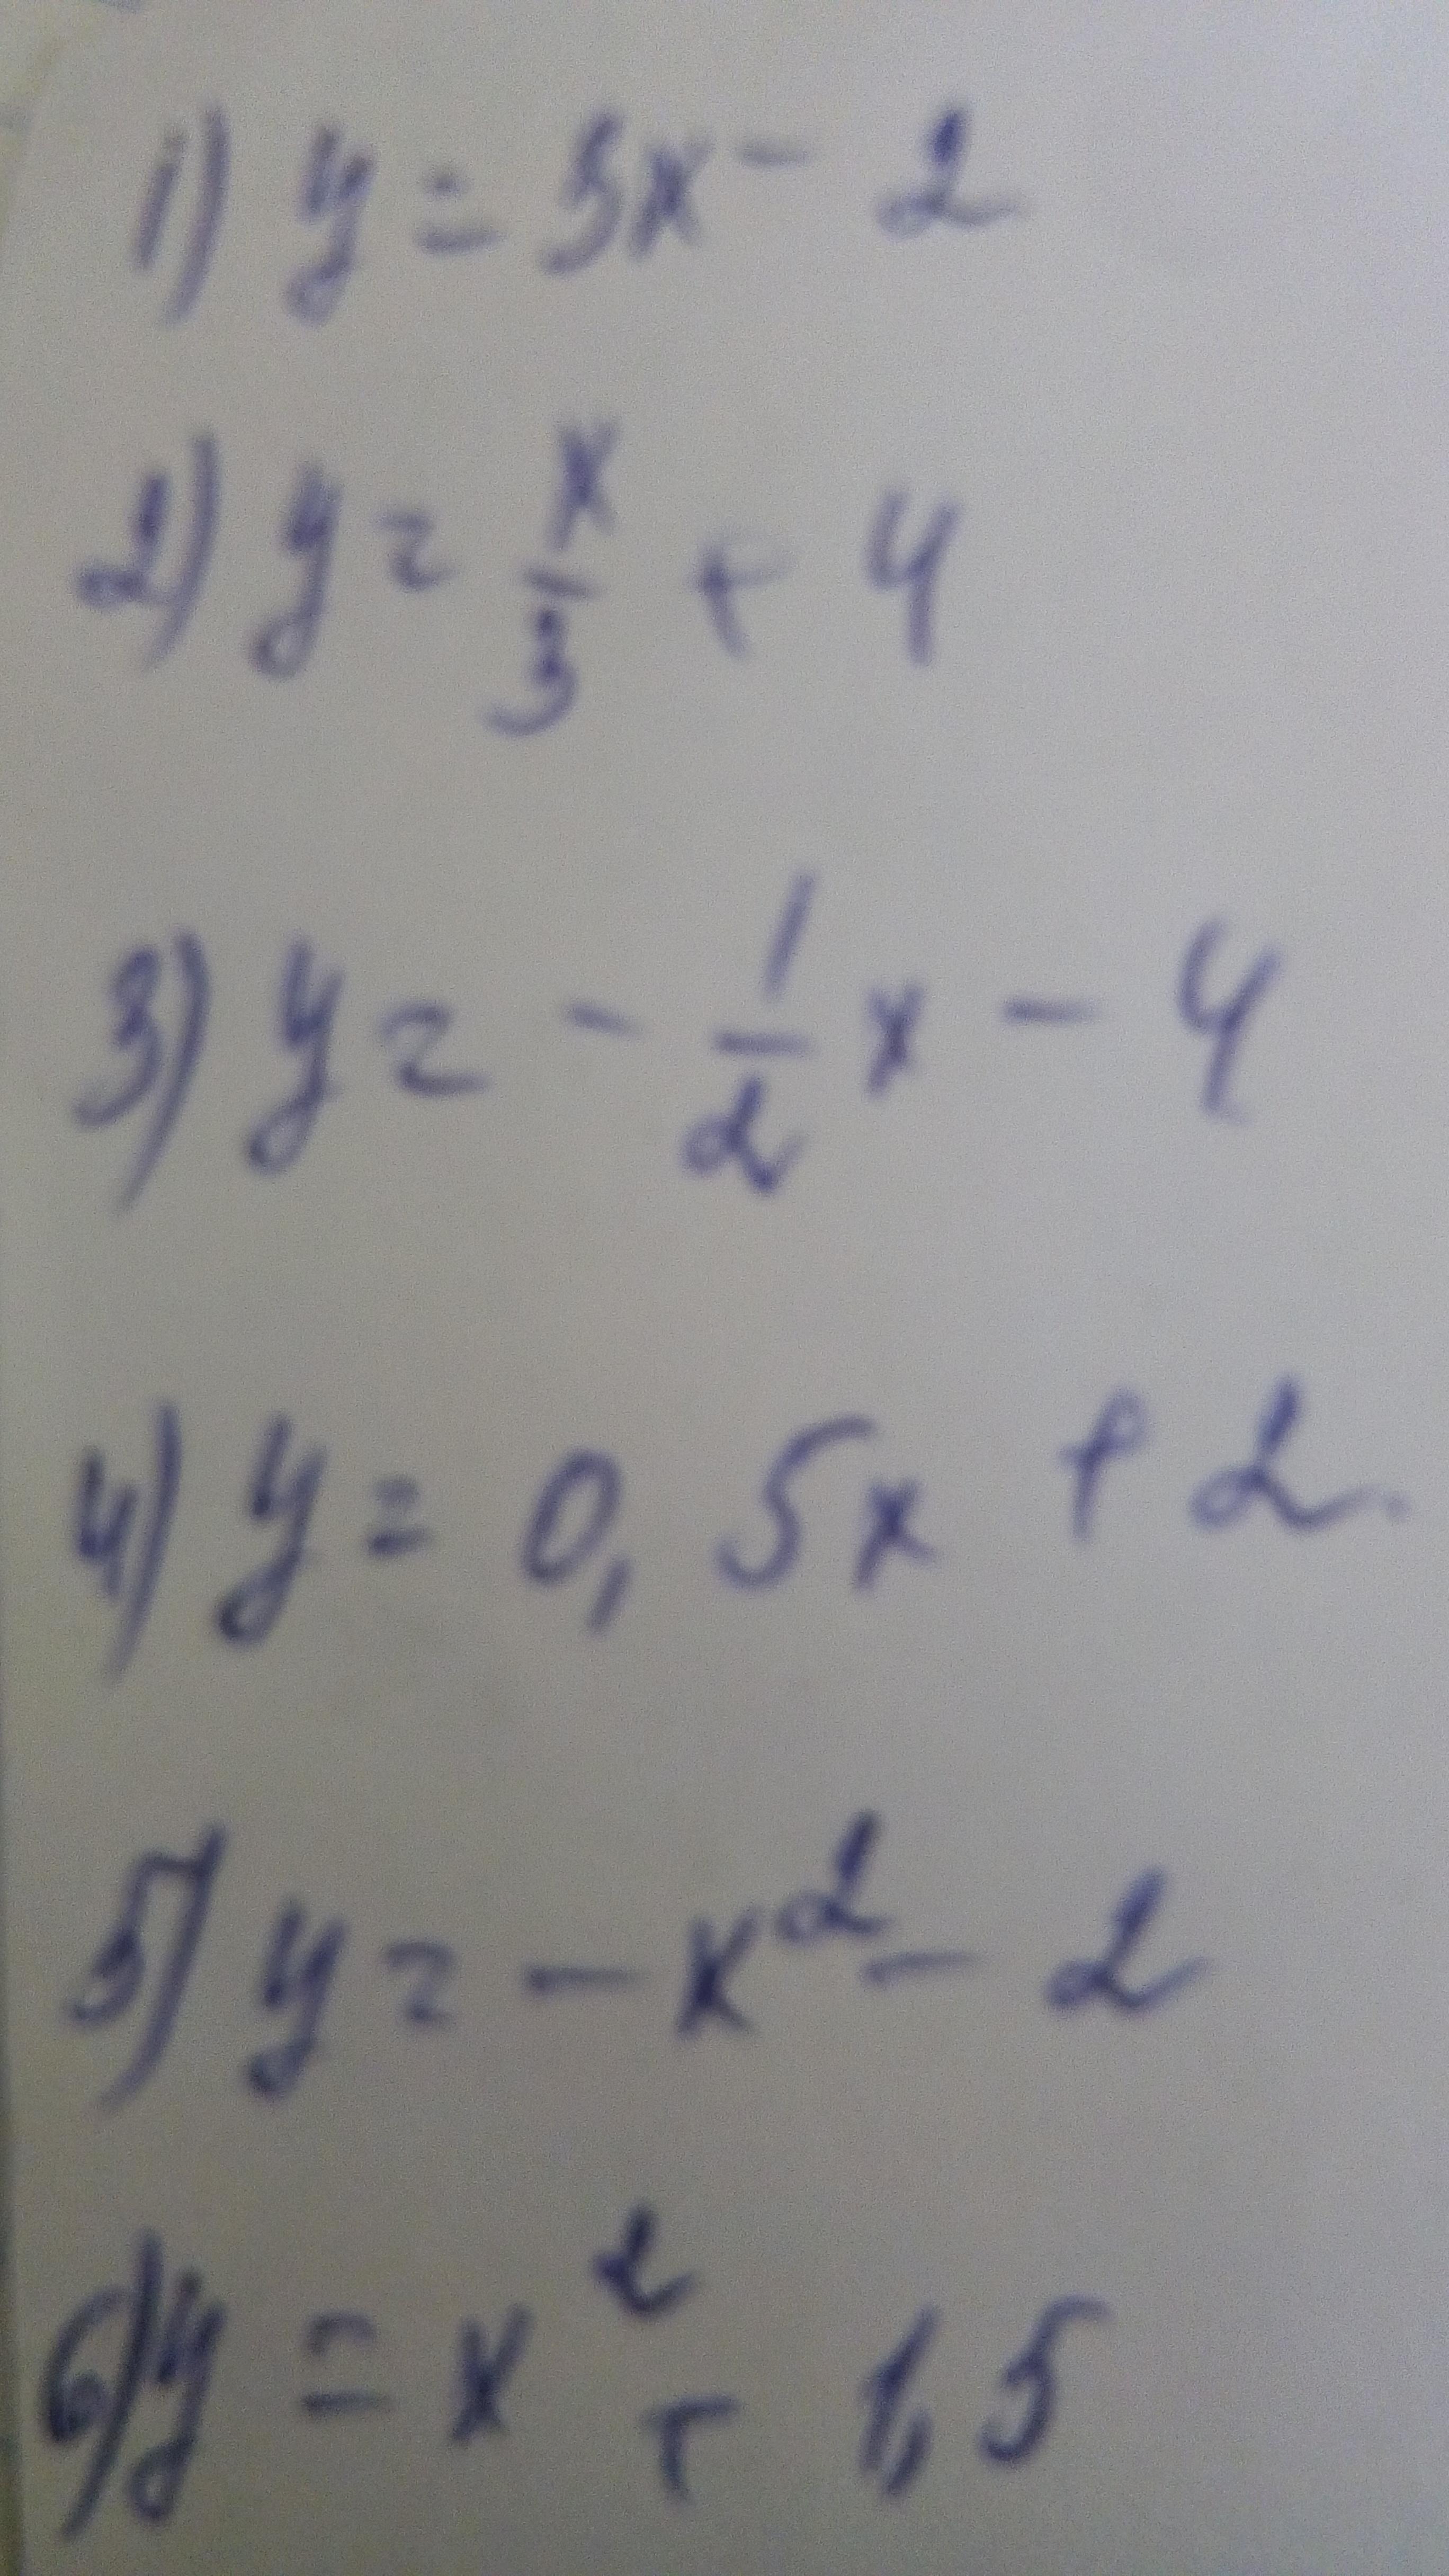 1) y = 3x - 2
2) y = x/3 + 4
3) y = - 1/2 x - 4
4) y = 0,5x + 2.
5) y = - x² - 2
6) y = x² + 1,5